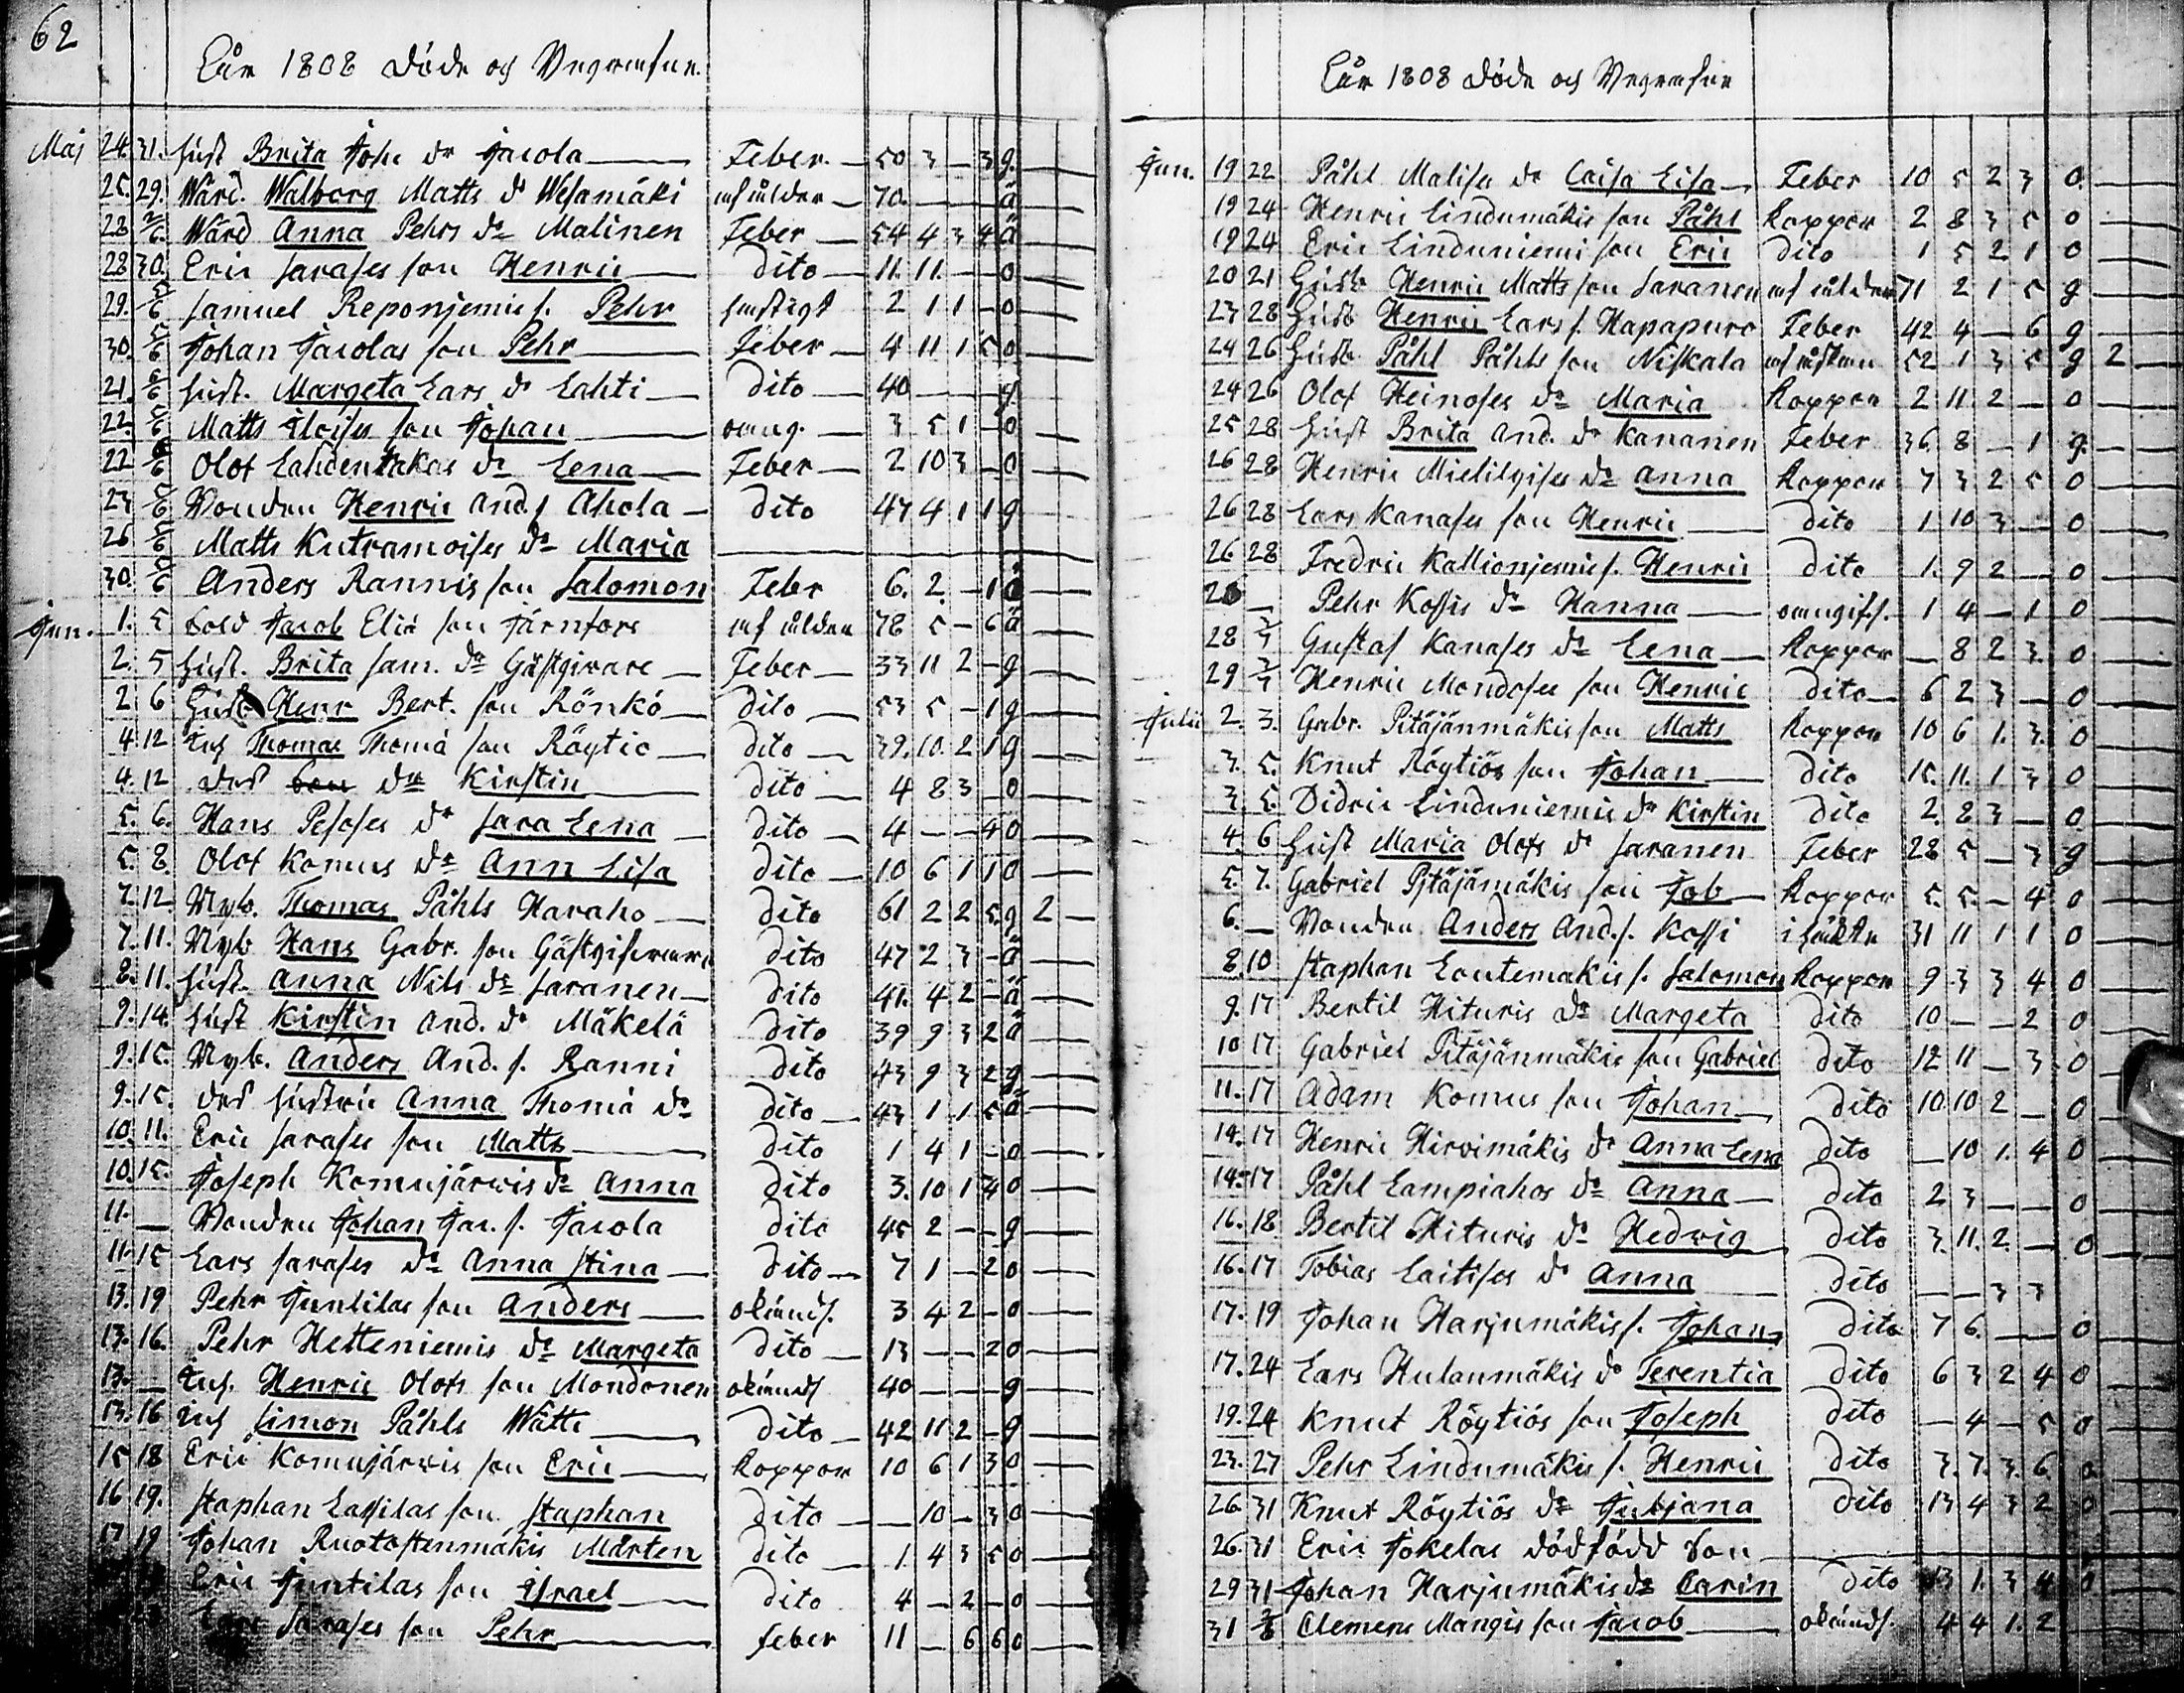 62
År 1808 Döde och Begrafne.
Maj 24. 31. Hust Brita Joh: dr Jacola Feber. 50 3 – 3 g.
25. 29. Wärd. Walborg Matts dr Wesamäki af ålder 70. ä
28 2/6. Wärd Anna Pehrs dr Malinen Feber 54 4 3 4 ä
28 30. Eric Sarases son Henric dito 11. 11. – – o
29. 5/6 Samuel Reponjemis s. Pehr hastigt 2 1 1 – o
30. 5/6 Johan Jacolas son Pehr Feber 4 11 1 5 o
21. 5/6 Hust. Margeta Lars dr Lahti dito 40 – – – g
22. 5/6 Matts son Johan 3 5 1 – o
22 5/6 Olof Lahdentakas dr Lena Feber 2 10 3 – o
23 5/6 Bonden Henric And. s Ahola dito 47 4 1 1 g
26 5/6 Matts Kutramoises dr Maria
30. 5/6 Anders Rannis son Salomon Febr 6. 2. – 1 o
Jun. 1. 5 Sold Jacob Eliæ son Järnfors af ålder 78 5 – 6 ä
2. 5 Hust. Brita Sam. dr Gästgivare Feber 33 11 2 – g
2 6 Husb Henr Bert. son Rönkö dito 53 5 – 1 g
4. 12 Inh Thomas Thomæ son Röytiö dito 39. 10. 2 1 g
4. 12 des son dr Kirstin dito 4 8 3 – o
5. 6. Hans Pesoses dr Sara Lena dito 4 – – 4 o
5. 8. Olof Komus dr Ann Lisa dito 10 6 1 1 o
7. 12. Nyb. Thomas Påhls Haraho dito 61 2 2 5. g 2
7. 11. Nyb Hans Gabr. son Gästgifvare dito 47 2 3 – ä
8. 11. Hust. Anna Nils dr Saranen dito 41. 4 2 – ä
9. 14. Hust Kirstin And. dr Mäkelä dito 39 9 3 2 ä
9. 15. Nyb. Anders And. s. Ranni dito 43 9 3 2 g
9. 15. des hustru Anna Thomæ dr dito 43 1 1 5 ä
10. 11. Eric Sarases son Matts dito 1 4 1 – o
10. 15. Joseph Komujärwis dr Anna dito 3. 10 1 4 o
11. – Bonden Johan Jac. s. Jacola dito 45 2 – – g
11. 15 Lars Sarases dr Anna Stina dito 7 1 – 2 o
13. 19 Pehr Juntilas son Anders okänds. 3 4 2 – o
13. 16. Pehr Hetteniemis dr Margeta dito 13 – – 2 o
13. – Inh. Henric Olofs son Mondonen okänds 40 – – – g
13. 16 Inh Simon Påhls Wätti dito 42 11 2 – g
15 18 Eric Komujärwis son Eric Koppor 10 6 1 3 o
16 19. Staphan Lassilas son Staphan dito – 10 – 3 o
17 19 Johan Ruotostenmäkis Mårten dito 1. 4 3 5 o
Eric Juntilas son Israel dito 4 – 2 – o
Lars Sarases son Pehr feber 11 – 6 6 o
År 1808 Döde och Begrafne
Jun. 19 22 Påhl Malises dr Caisa Lisa Feber 10 5 2 3 o.
19 24 Henric Lindumäkis son Påhl Koppor 2 8 3 5 o
19 24 Eric Linduniemi son Eric dito 1 5 2 1 o
20 21 Husb. Henric Matts son Saranen af ålder 71 2 1 5 g
23 28 Husb Henric Lars s. Hapapuro Feber 42 4 – 6 g
24 26 Husb. Påhl Påhls son Niskala 52 1 3 5 g 2
24 26 Olof Heinoses dr Maria Koppor 2 11. 2 – o
25 28 Hust Brita And. dr Kananen Feber 36 8 – 1 g.
26 28 Henric Mielilyises dr Anna Koppor 7 3 2 5 o
26 28 Lars Kanases son Henric dito 1 10 3 – o
26 28 Fredric Kallionjemis s. Henric dito 1. 9 2 – o
26 – Pehr Kossis dr Hanna 1 4 – 1 o
28 3/7 Gustaf Kanases dr Lena Koppor – 8 2 3. o
29 3/7 Henric Mondoses son Henric dito 6 2 3 – o
Julii 2. 3. Gabr. Pitäjänmäkis son Matts Koppor 10 6 1. 3. o
3. 5. Knut Röytiös son Johan dito 15. 11. 1 3 o
3 5. Didric Linduniemis dr Kirstin dito 2. 8 3 – o
4. 6 Hust Maria Olofs dr Saranen Feber 28 5 – 3 g
5. 7. Gabriel Pjtäjämäkis son Job Koppor 5. 5. – 4 o
6. – Bonden Anders And. s. Kossi i häkte 31 11 1 1 o
8. 10 Staphan Loutemakis s. Salomon Koppor 9 3 3 4 o
9. 17 Bertil Hituris dr Margeta dito 10 – – 2 o
10 17 Gabriel Pitäjänmäkis son Gabriel dito 12 11 – 3 o
11. 17 Adam Komus son Johan dito 10 10 2 – o
14. 17 Henric Hirvimäkis dr Anna Lena dito – 10 1. 4 o
14. 17 Påhl Lampiahos dr Anna dito 2 3 – – o
16. 18. Bertil Hituris dr Hedwig dito 3. 11. 2. – o
16. 17 Tobias Laitises dr Anna dito – – 3 3
17. 19 Johan Harjumäkis s. Johan dito 7 6. – – o
17. 24 Lars Hulanmäkis dr Terentia dito 6 3 2 4 o
19. 24 Knut Röytiös son Joseph dito – 4 – 5 o
23. 27 Pehr Lindumäkis s. Henric dito 3. 7. 3. 6. o
26. 31 Knut Röytiös dr Juljana dito 13 4 3 2 o
26. 31 Eric Jokelas dödfödd son
29 31 Johan Harjumäkis dr Carin dito 13 1. 3 4 o
31 3/8 Clemens Mangis son Jacob okänds. 4 4 1. 2